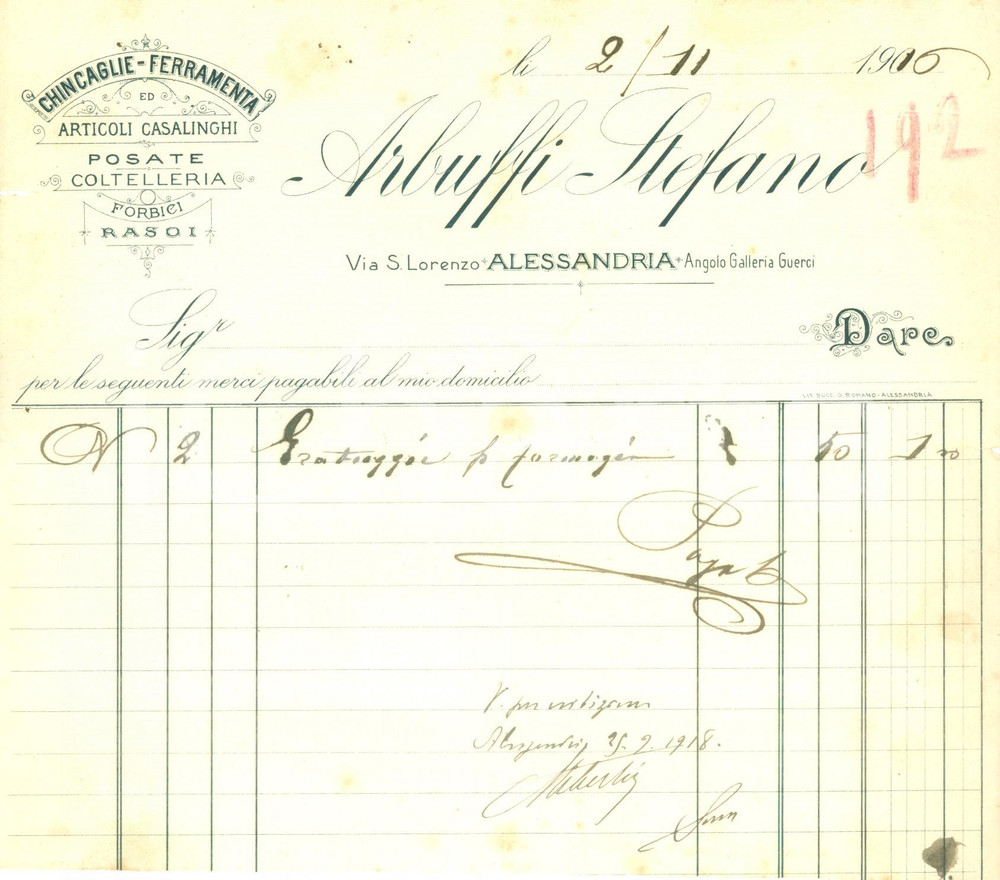 CHINCAGLIE-FERRAMENTA
ED
ARTICOLI CASALINGHI
POSATE
COLTELLERIA
FORBICI
RASOI
li 2/11 1906
192
Arbuffi Stefano
Via S. Lorenzo ALESSANDRIA Angolo Galleria Guerci
Sigr
Dare
per le seguenti merci pagabili al mio domicilio
LIT. SUCC. G. ROMANO - ALESSANDRIA
N 2 50 1
Pagato
V. per
25. 9. 1918.